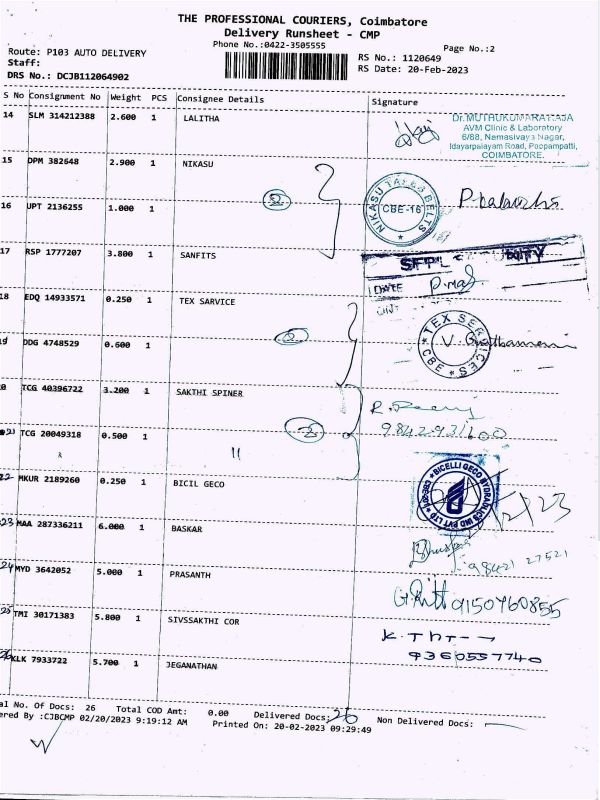 THE PROFESSIONAL COURIERS, Coimbatore
Delivery Runsheet - CMP
Phone No.:0422-3505555
Page No.:2
Route: P103 AUTO DELIVERY
RS No.: 1120649
Staff:
RS Date: 20-Feb-2023
DRS No.: DCJB112064902
S No Consignment No Weight PCS Consignee Details Signature
14 SLM 314212388 2.600 1 LALITHA
Dr.MUTHUKUMARARAJA
AVM Clinic & Laboratory
6/88, Namasivaya Nagar,
Idayarpalayam Road, Pappampatti,
COIMBATORE.
15 DPM 382648 2.900 1 NIKASU
2
NIKASU TAPES BELTS
CBE-16
16 UPT 2136255 1.000 1
17 RSP 1777207 3.800 1 SANFITS
SFPL
DATE
18 EDQ 14933571 0.250 1 TEX SARVICE
2
TEX SERVICES
CBE
19 DDG 4748529 0.600 1
0 TCG 40396722 3.200 1 SAKTHI SPINER
21 TCG 20049318 0.500 1 "
2
22 MKUR 2189260 0.250 1 BICIL GECO
BICELLI GECO HYDRAULICS IND PVT LTD
23 MAA 287336211 6.000 1 BASKAR
98421 27521
24 MYD 3642052 5.000 1 PRASANTH
9150760855
25 TMI 30171383 5.800 1 SIVSSAKTHI COR
9360557740
26 KLK 7933722 5.700 1 JEGANATHAN
al No. Of Docs: 26 Total COD Amt: 0.00 Delivered Docs: 26 Non Delivered Docs:
ered By :CJBCMP 02/20/2023 9:19:12 AM Printed On: 20-02-2023 09:29:49